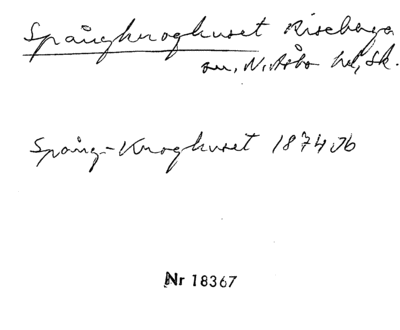 Spångkroghuset Riseberga
sn, N. Åsbo hd, Sk.
Spång-Kroghuset 1874 Jb
Nr 18367